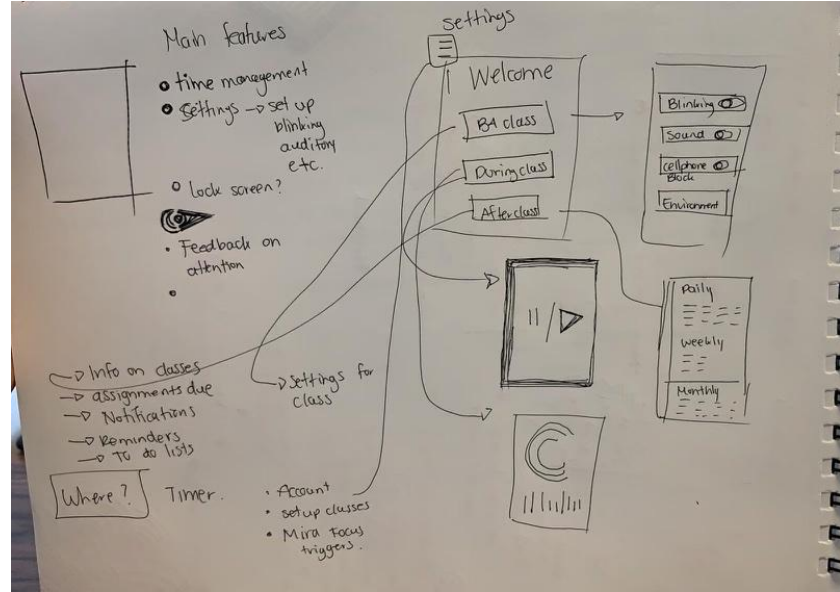 Main features
time management
settings → set up
blinking
auditory
etc.
Lock screen?
Feedback on
attention
→ Info on classes
→ assignments due
→ Notifications
→ Reminders
→ To do lists
Where?
Timer.
→ settings for
class
• Account
• setup classes
• Mira Focus
triggers.
settings
Welcome
B4 class
During class
After class
Blinking
Sound
cellphone
Block
Environment
Daily
Weekly
Monthly